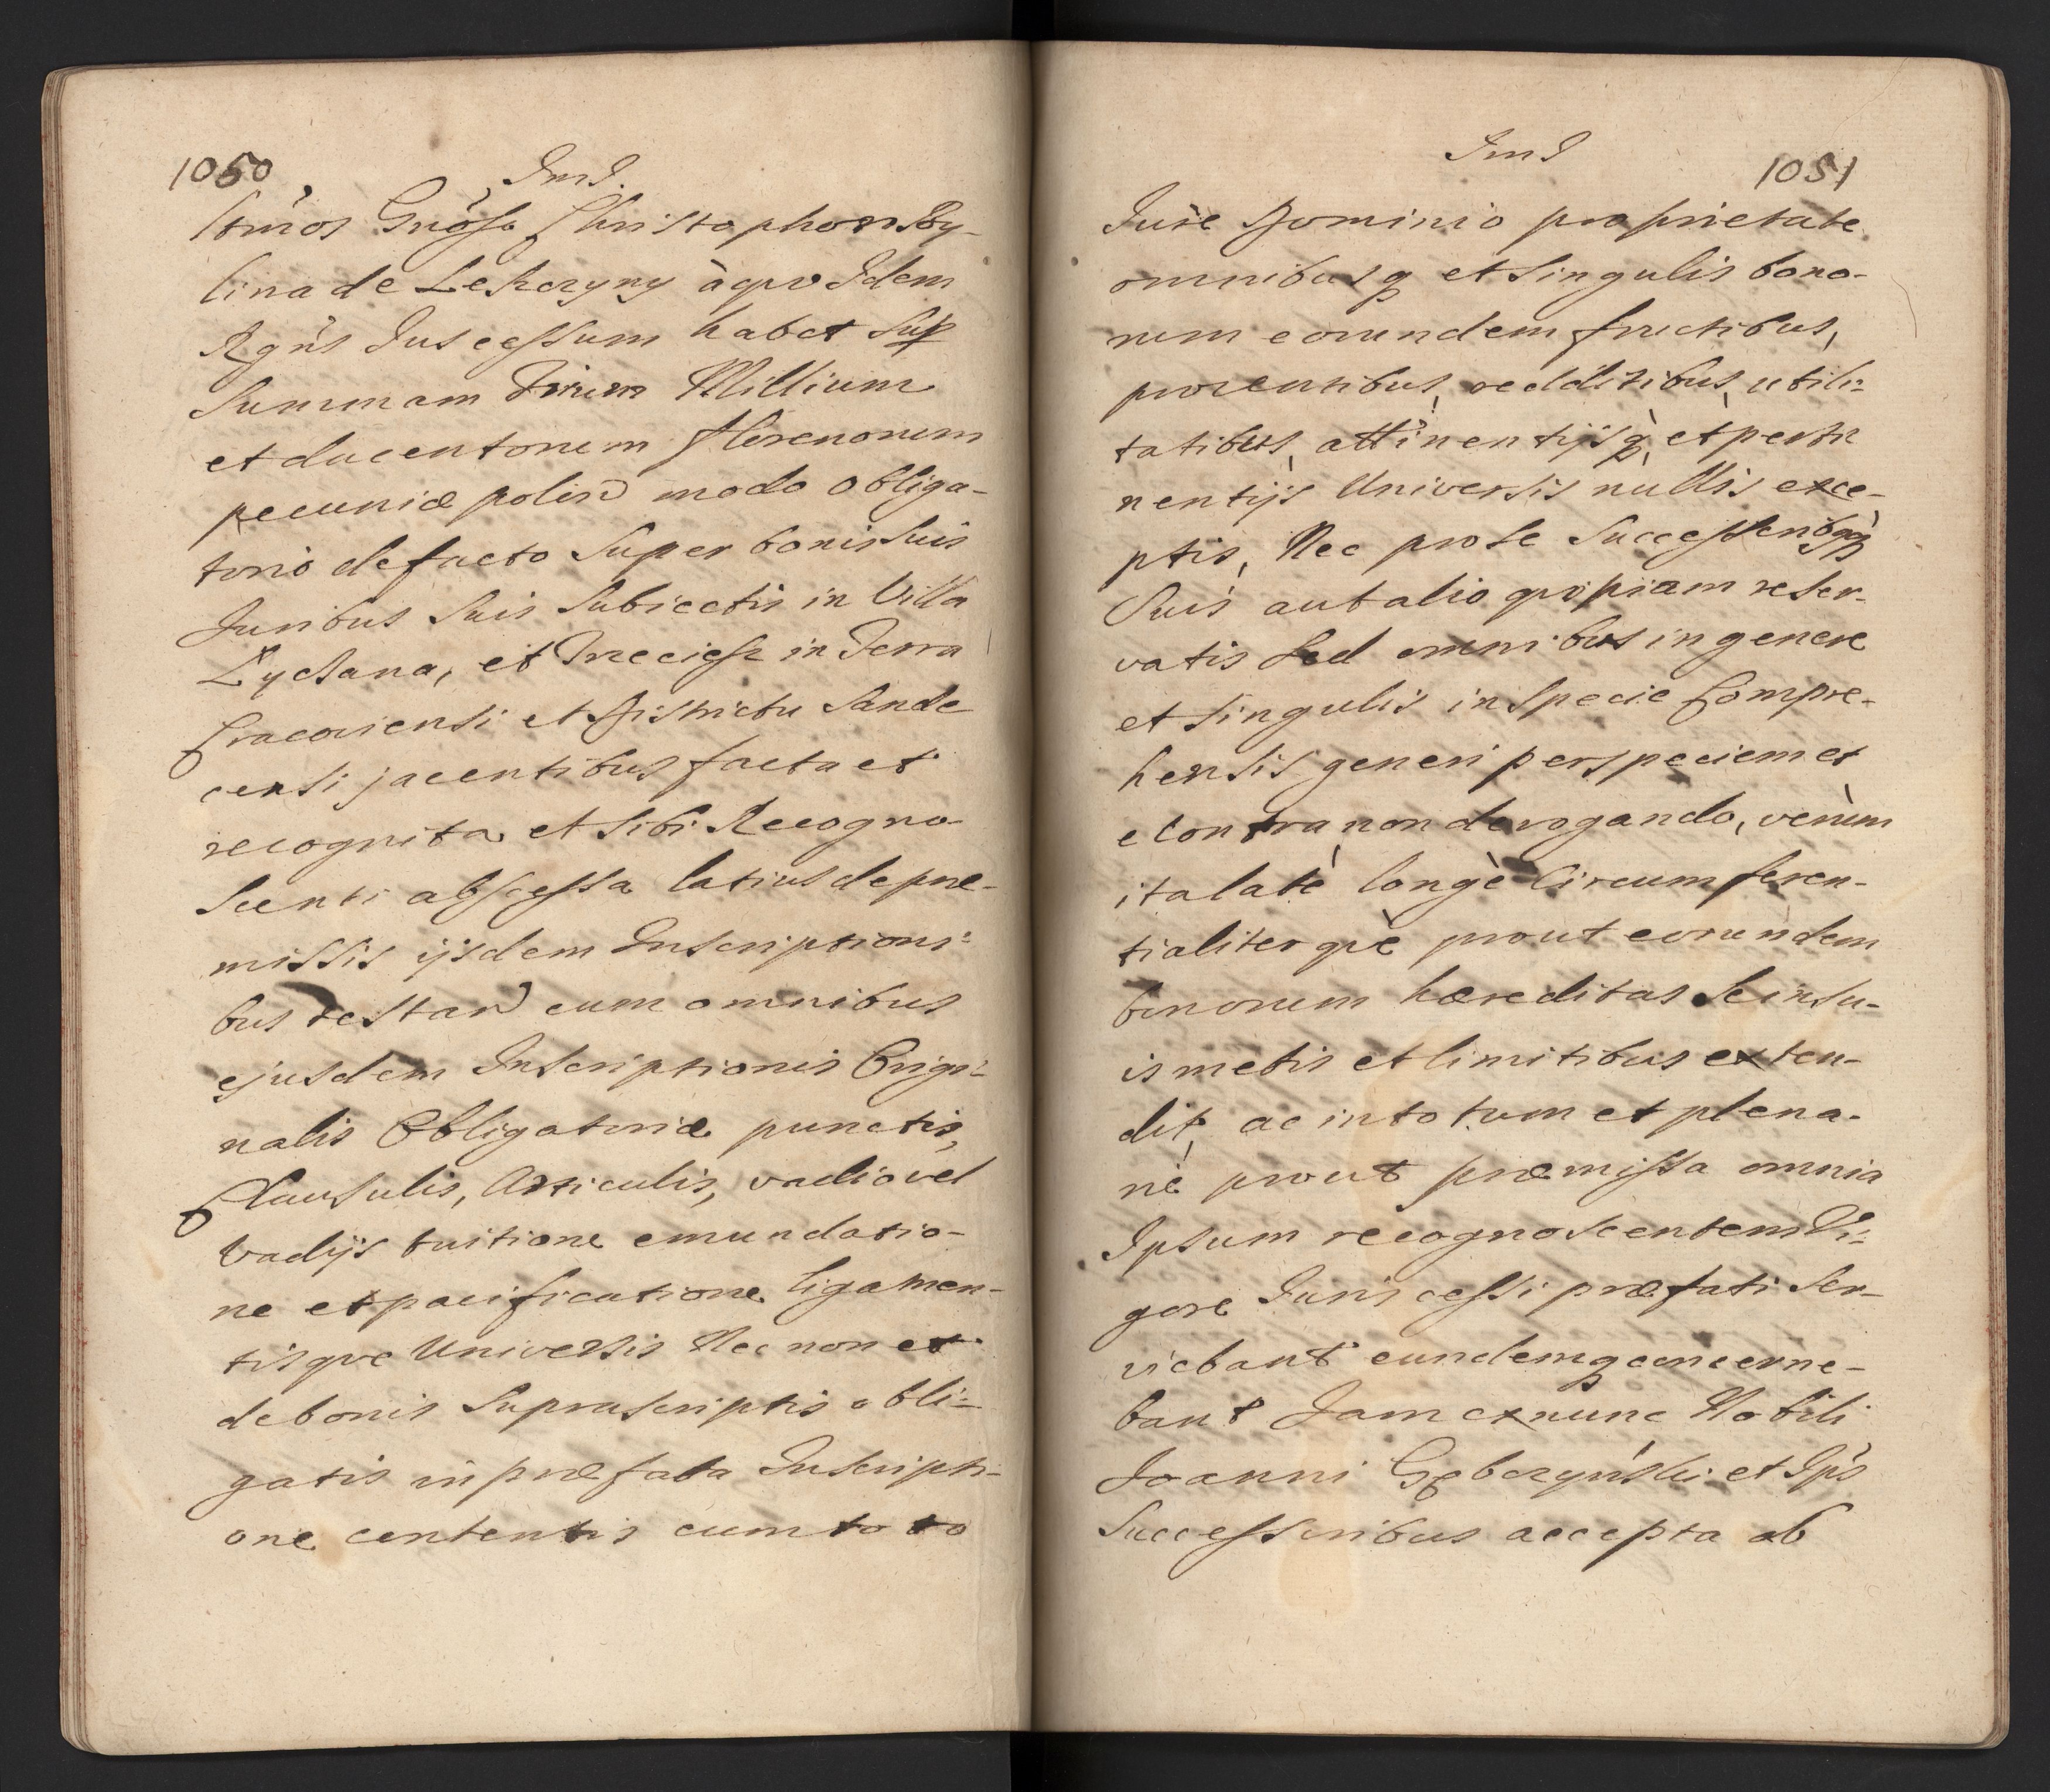 1050
Ind.
Itmos Gnoso Christophoro Sby-
lina de Lekczyny à quo Idem
Rgns Jus cessum habet Sup
Summam Trium Millium
et ducentorum florenorum
pecuniæ polis modo obliga-
torio de facto Super bonis Suis
Juribus Suis Subiectis in Villa
Lyczana, et Trzeciesz in Terra
Cracoviensi et Districtu Sande
censi jacentibus facta et
recognita et Sibi Recogno-
Scenti abscessa latius de præ-
missis ijsdem Inscriptioni-
bus testan cum omnibus
ejusdem Inscriptionis Origi-
nalis Obligatoriæ punctis,
Clausulis, Articulis, vadio vel
Vadijs tuitione emundatio-
ne et pacificatione ligamen-
tisque Universis Nec non et
de bonis Suprascriptis obli-
gatis in præfata Inscripti-
one contentis cum toto
Ind
1051
Jure Dominio proprietate
omnibusq et Singulis bono-
rum eorundem fructibus,
proventibus, redditibus, utili-
tatibus, attinentijsq, et perti
nentijs Universis nullis exce-
ptis, Nec pro se Successoribqq
Suis aut alio quopiam reser-
vatis Sed omnibus in genere
et Singulis in Specie Compre-
hensis generi per speciem et
e Contra non derogando, verùm
ita latè longè Circumferen-
tialiterquè prout eorundem
bonorum hæreditas Se in su-
is metis et limitibus exten-
dit, ac in totum et plena-
rie prout præmissa omnia
Ipsum recognoscentem Vi-
gore Juris cessi præfati Ser-
viebant eundemq concerne-
bant Jam ex nunc Nobili
Joanni Gębczyński et Ips
Successoribus accepta ab